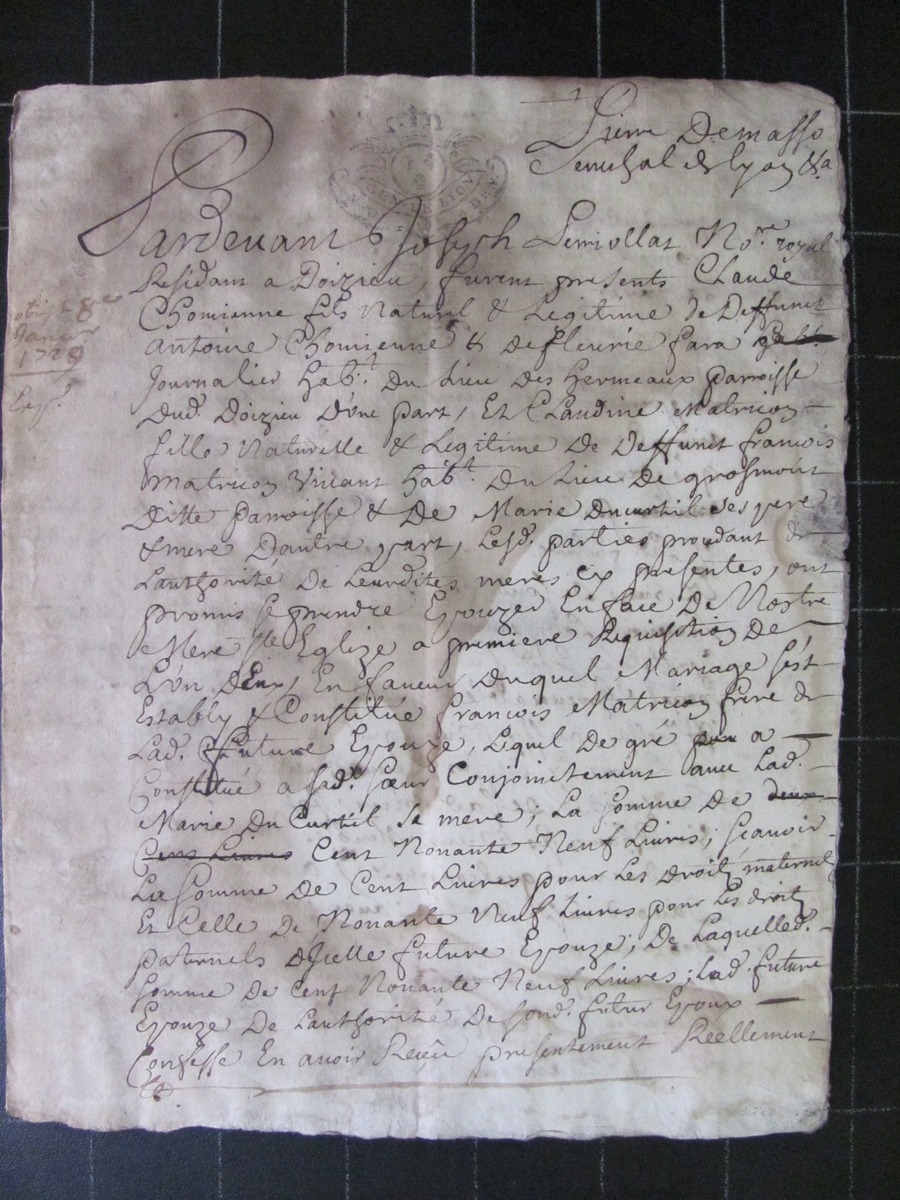 Pierre Demasso
Senechal de lyon &a
Pardevant Joseph Lerriollat No.re royal
Residant a Doizieu, furent presents Claude
Chomienne fils Naturel & Legitime de Deffunct
Antoine Chomienne & de fleurie fara
Journalier hab.t du Lieu des hermeaux parroisse
dud. Doizieu d'une part, Et Claudine Matricon
fille Naturelle & Legitime de Deffunct françois
Matricon Vivant hab.t du Lieu de grosmont
ditte parroisse & de Marie ducurtil ses pere
& mere D'autre part, Lesd. parties procedant de
L'authorité de Leursdites meres cy presentes, ont
promis se prendre Epouzer En face de Nostre
Mere Ste Eglize a premiere Requisition de
L'un d'Eux, En faveur duquel Mariage s'est
Estably & Constitué françois Matricon frere de
Lad. future Epouze, Lequel de gré a
Constitué a sad. sœur Conjoinctement avec Lad.
Marie du Curtil sa mere, La somme de deux
Cens Livres Cent Nonante Neuf Livres, sçavoir
La somme de Cent Livres pour Les droits maternels
Et Celle de Nonante Neuf Livres pour Les droits
paternels d'Icelle future Epouze, De Laquelle d.
somme de Cent Nonante Neuf Livres, Lad. future
Epouze de L'authorité de sond. futur Epoux
Confesse En avoir Reçeu presentement Reellement
&
Janvier
1729
Exp.